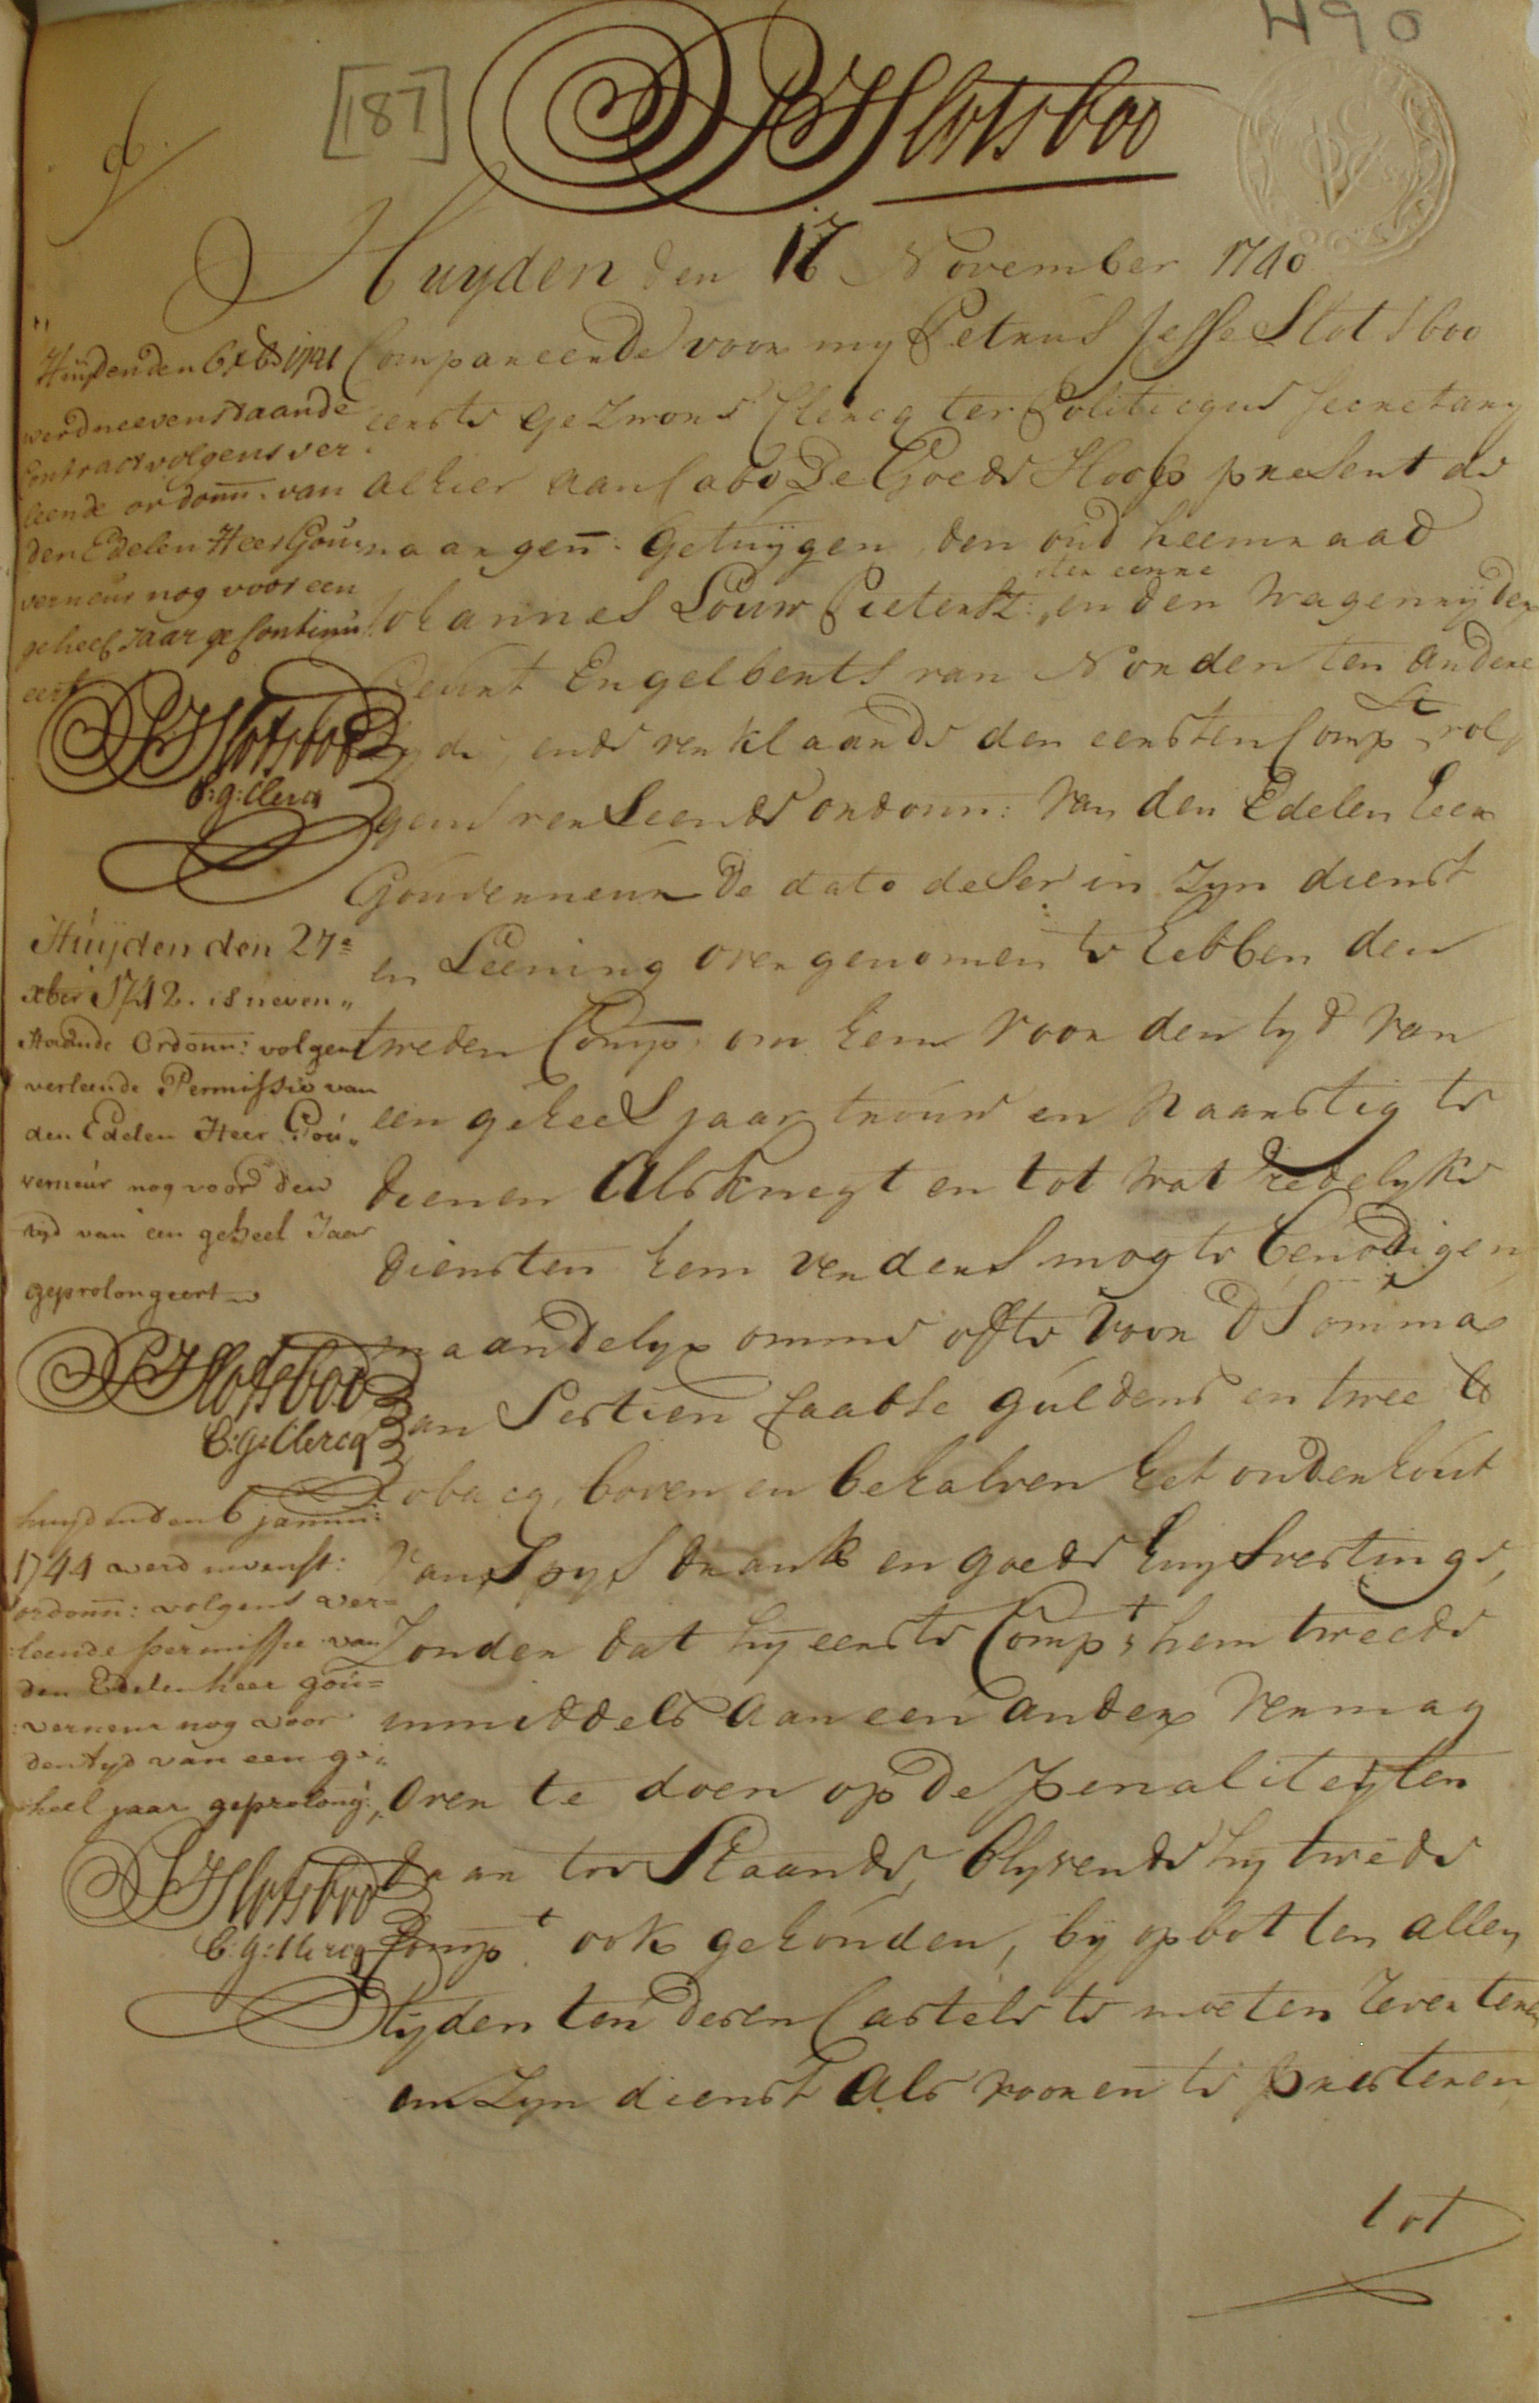 490
[187]
PJSlotsboo
Huyden den 17 November 1740
Compareerde voor my Petrus Jesse Slotsboo
eerste gezwore Clercq ter Politicque Secretary
alhier aan Cabo De Goede Hoop present de
naar gen: getuygen, den oud heemraad
Johannes Louw Pietersz: ter eenre, en den Wagenryder
Geurt Engelberts van Norden ten andere
zyde, ende verklaarde den eersten Comp:t vol„
gens verleende ordonn: van den Edelen Heer
Gouverneur de dato deser in zyn dienst
en Leening overgenomen te hebben den
tweden Comp: om hem voor den tyd van
een geheel jaar trouw en Naarstig te
dienen Als knegt en tot wat redelyke
diensten hem verders mogte benodigen
maandelyx omme ofte voor d' Somma
van Sestien Caabse guldens en twee lb
tobacq, boven en behalven het onderhout
van Spys drank en goede huysvestinge,
Zonder dat hy eerste Comp:t hem tweede
inmiddels aan een ander vermag
over te doen op de penaliteyten
daar toe Staande, blyvende hy twede
Comp:t ook gehouden, by opbot ten allen
tyden ten desen Castele te moeten reverteren
om zyn dienst Als vooren te presteren
tot
Huyden den 6 xb 1741
werd neevenstaande
Contract volgens ver„
leende ordonn: van
den Edelen Heer Gou„
verneur nog voor een
geheel Jaar gecontinu„
eert
PJSlotsboo
E:g:Clercq
Huyden den 27e
xber 1742. is neven„
staande Ordonn: volgens
verleende Permissie van
den Edelen Heer Gou„
verneur nog voor den
tyd van een geheel Jaar
geprolongeert
PJSlotsboo
E:g:Clercq
huyden den 6 januu:
1744 werd nevenst:
ordonn: volgens ver=
leende permissie van
den Edelen heer gou=
verneur nog voor
den tyd van een ge„
heel jaar geprolong:
PJSlotsboo
E:g:Clercq